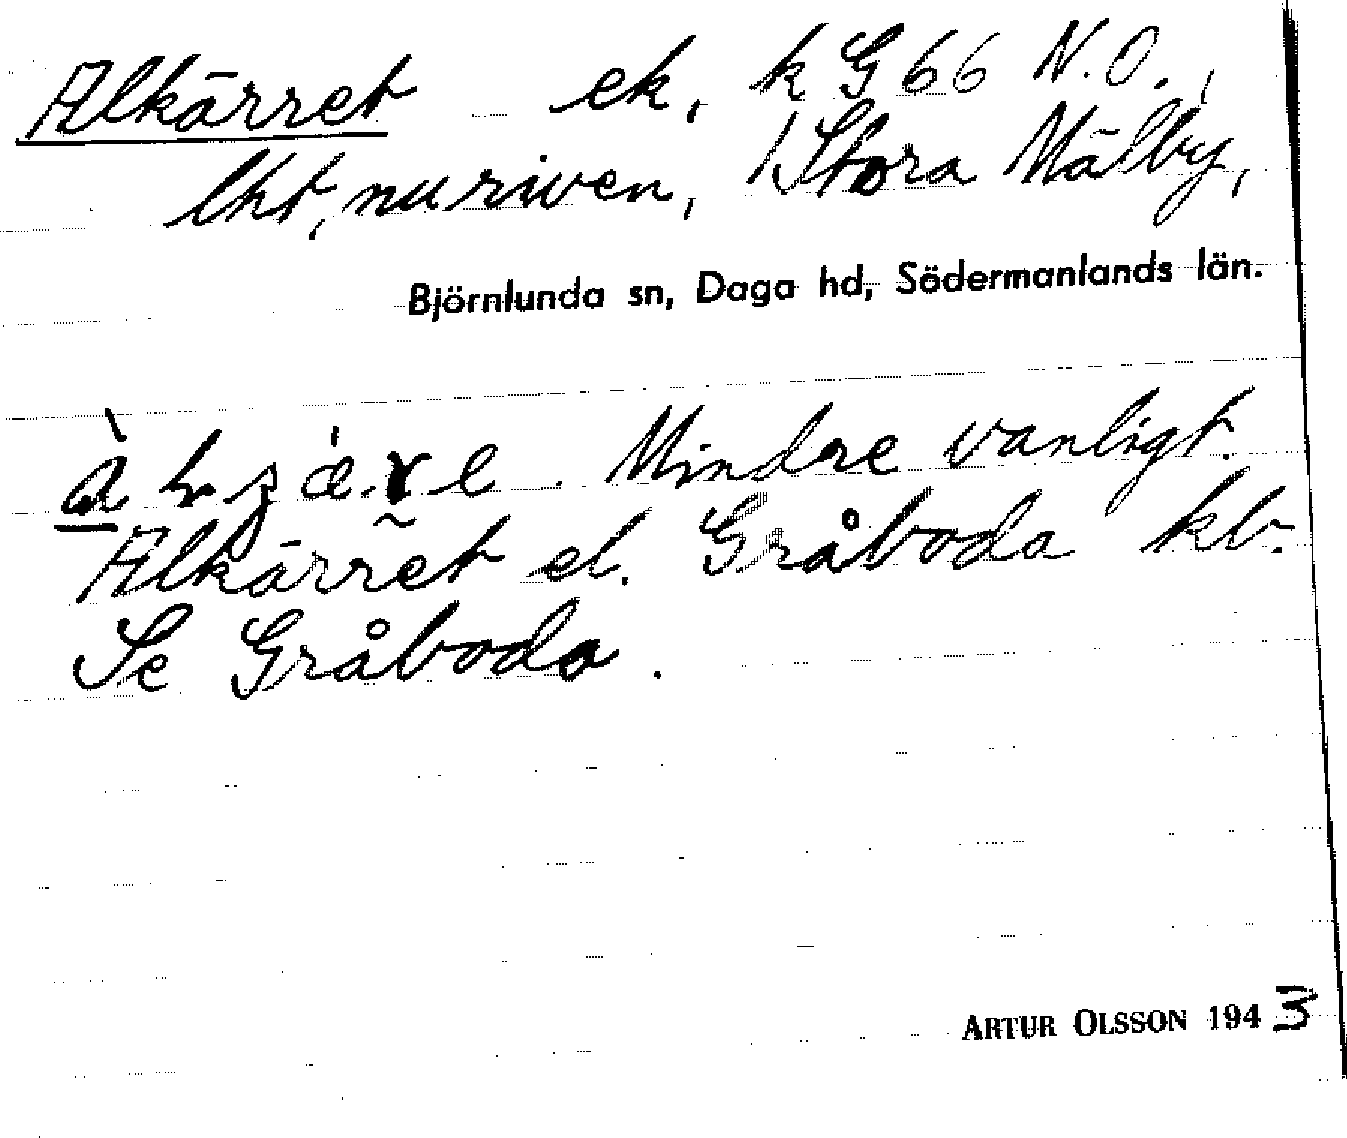 Alkärret ek, k G 66 N.O.,
lht, nu riven, Stora Mälby,
Björnlunda sn, Daga hd, Södermanlands län.
Mindre vanligt.
Alkärret el. Gråboda kb.
Se Gråboda.
ARTUR OLSSON 1943